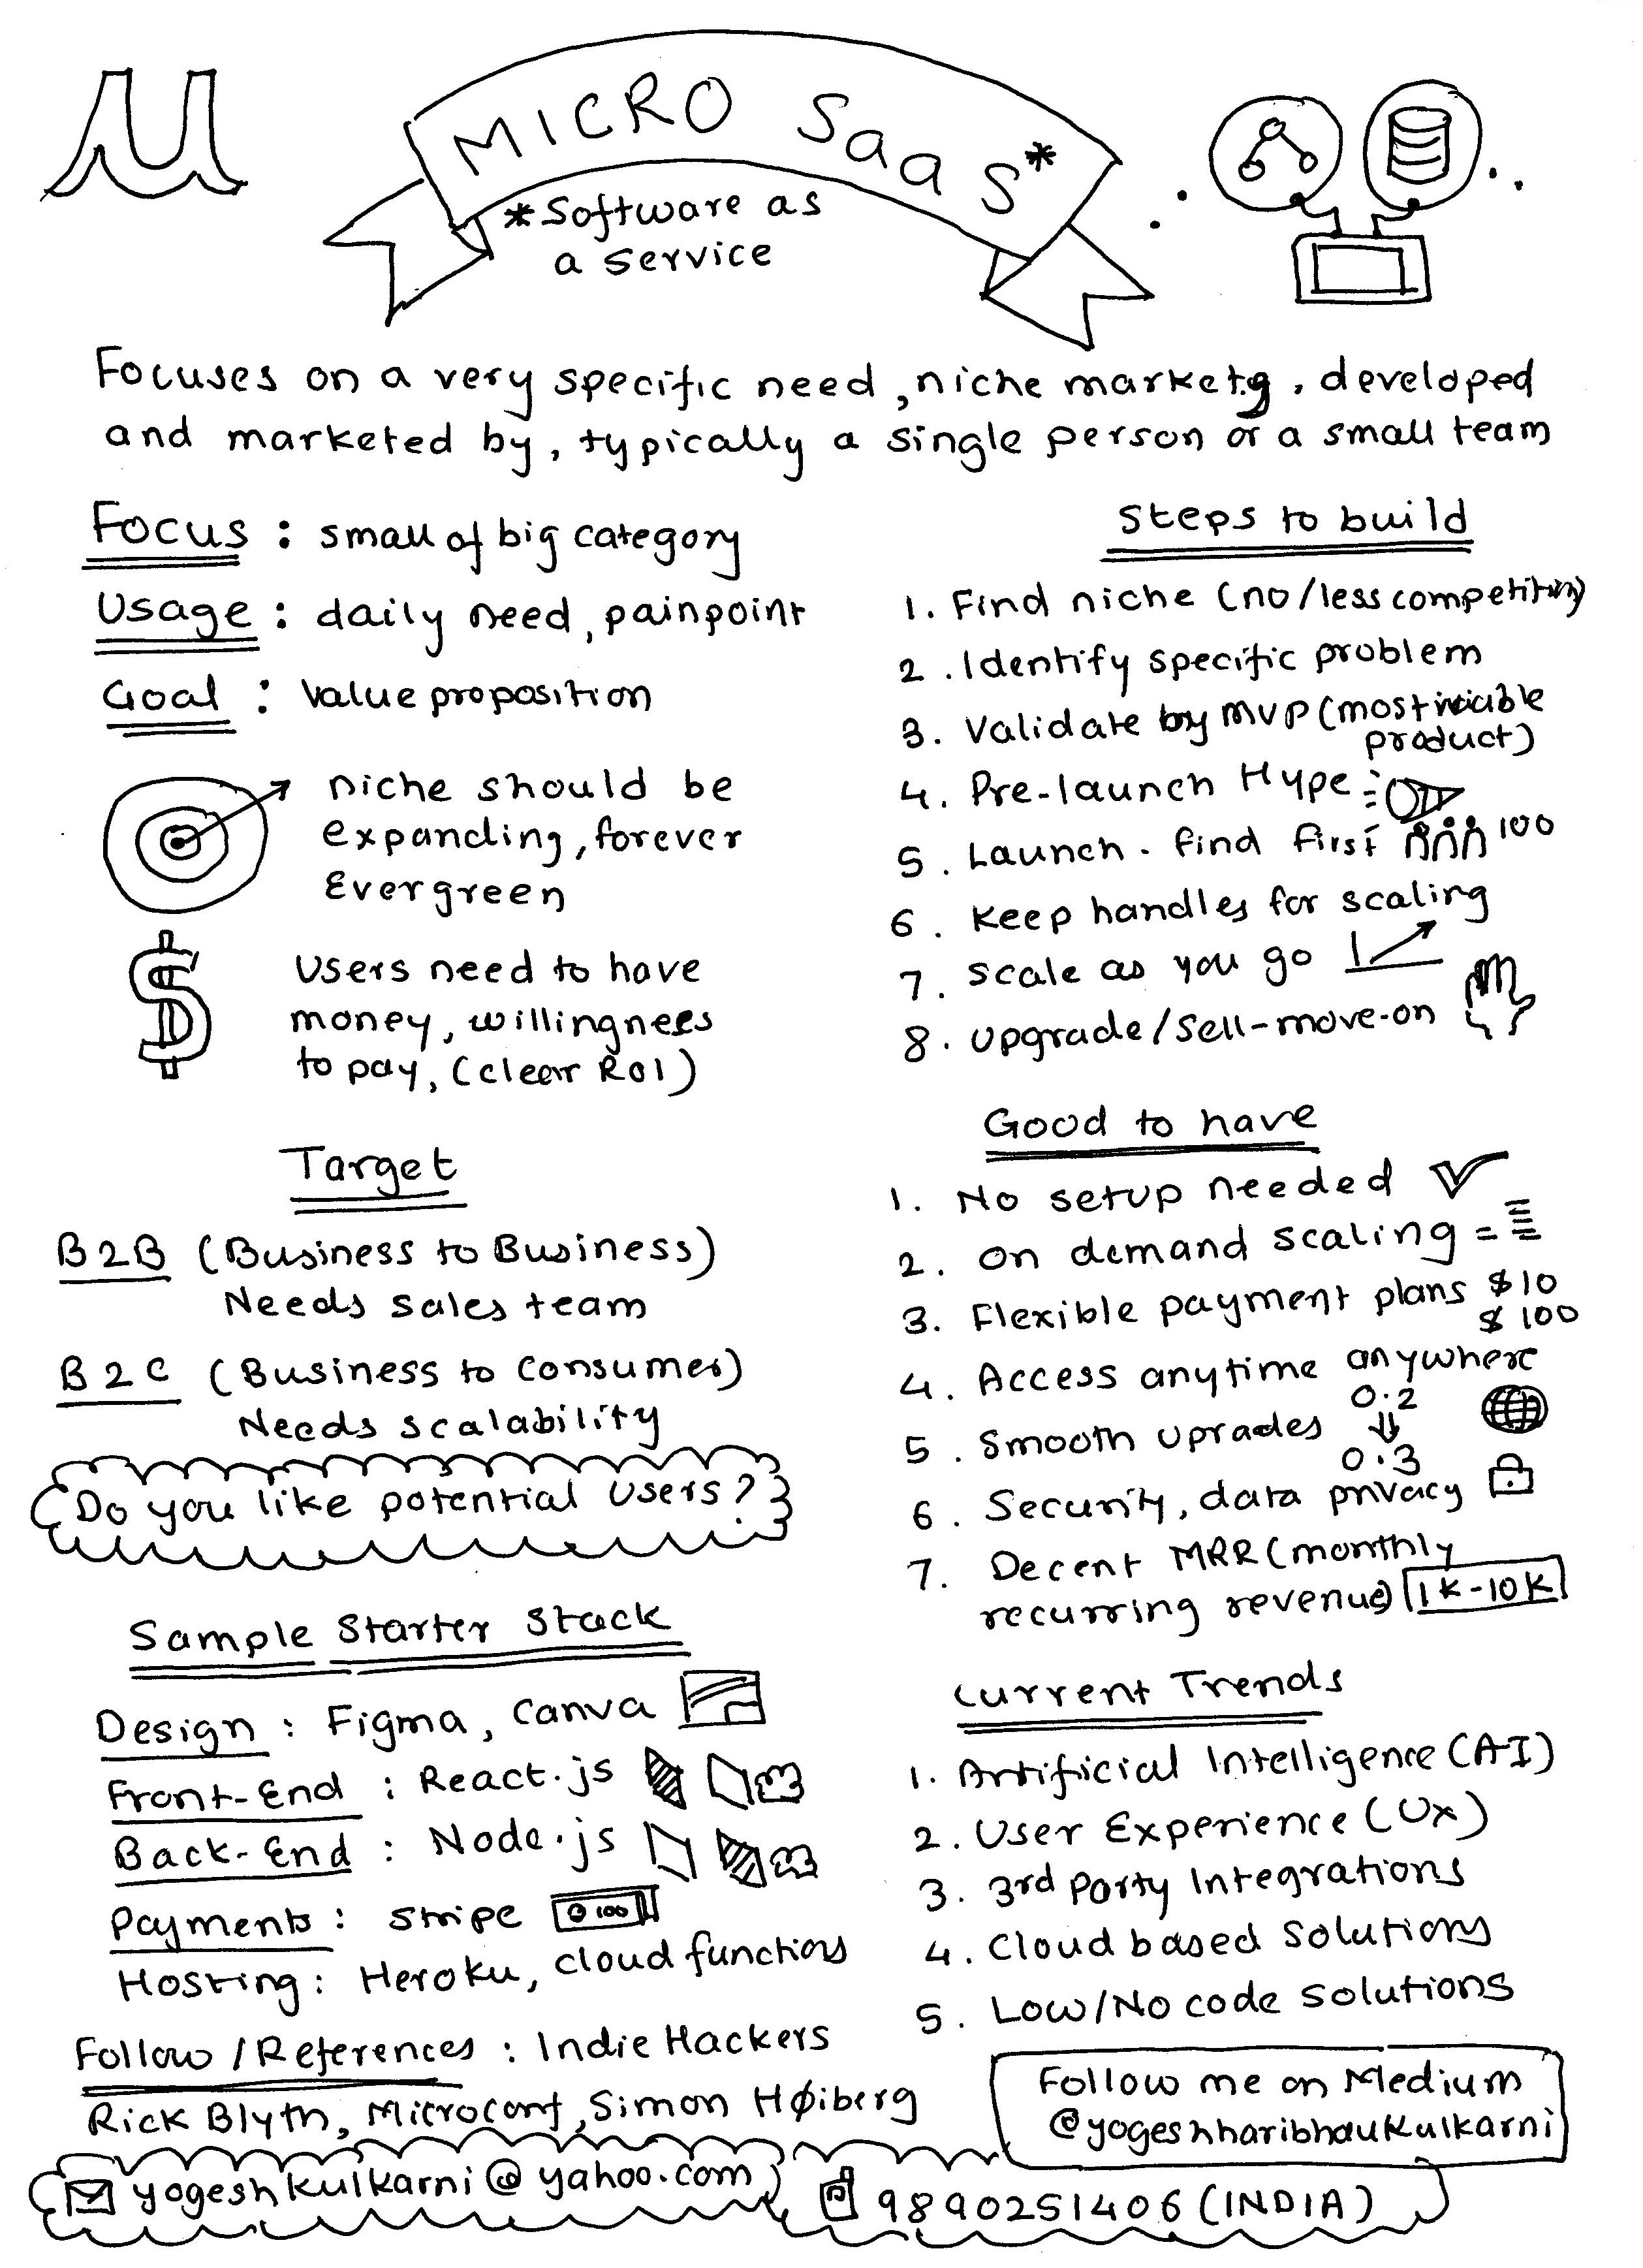 μ
MICRO SaaS*
*Software as
a service
Focuses on a very specific need, niche marketg, developed
and marketed by, typically a single person or a small team
Focus : small of big category
Usage : daily need, painpoint
Goal : value proposition
niche should be
expanding, forever
Evergreen
$
Users need to have
money, willingness
to pay, (clear ROI)
Target
B2B (Business to Business)
Needs sales team
B2C (Business to Consumer)
Needs scalability
Do you like potential users?
Sample Starter Stack
Design : Figma, Canva
Front-End : React.js
Back-End : Node.js
Payments : Stripe 100
Hosting : Heroku, cloud functions
Follow / References : Indie Hackers
Rick Blyth, Microconf, Simon Høiberg
yogeshkulkarni@yahoo.com
Steps to build
1. Find niche (no/less competition)
2. Identify specific problem
3. Validate by MVP (most viable
product)
4. Pre-launch Hype
5. Launch. find first 100
6. Keep handles for scaling
7. scale as you go
8. upgrade/sell-move-on
Good to have
1. No setup needed
2. on demand scaling
3. Flexible payment plans $10
$100
4. Access anytime anywhere
5. Smooth uprades 0.2
0.3
6. Security, data privacy
7. Decent MRR (monthly
recurring revenue) 1K-10K
Current Trends
1. Artificial Intelligence (AI)
2. User Experience (UX)
3. 3rd Party Integrations
4. Cloud based solutions
5. Low/No code solutions
Follow me on Medium
@yogeshharibhaukulkarni
9890251406 (INDIA)